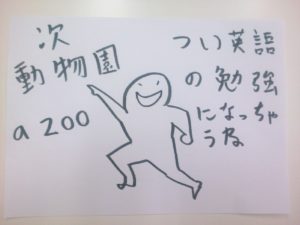 次
動物園
a 200
つい英語
の勉強
になっちゃ
うね